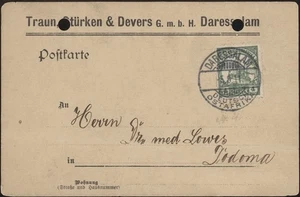 Traun, Stürken & Devers G. m. b. H. Daressalam
Postkarte
DARESSALAM
DEUTSCH-
OSTAFRIKA
An
Herrn
Dr. med Lowes
in Dodoma
Wohnung
(Straße und Hausnummer)